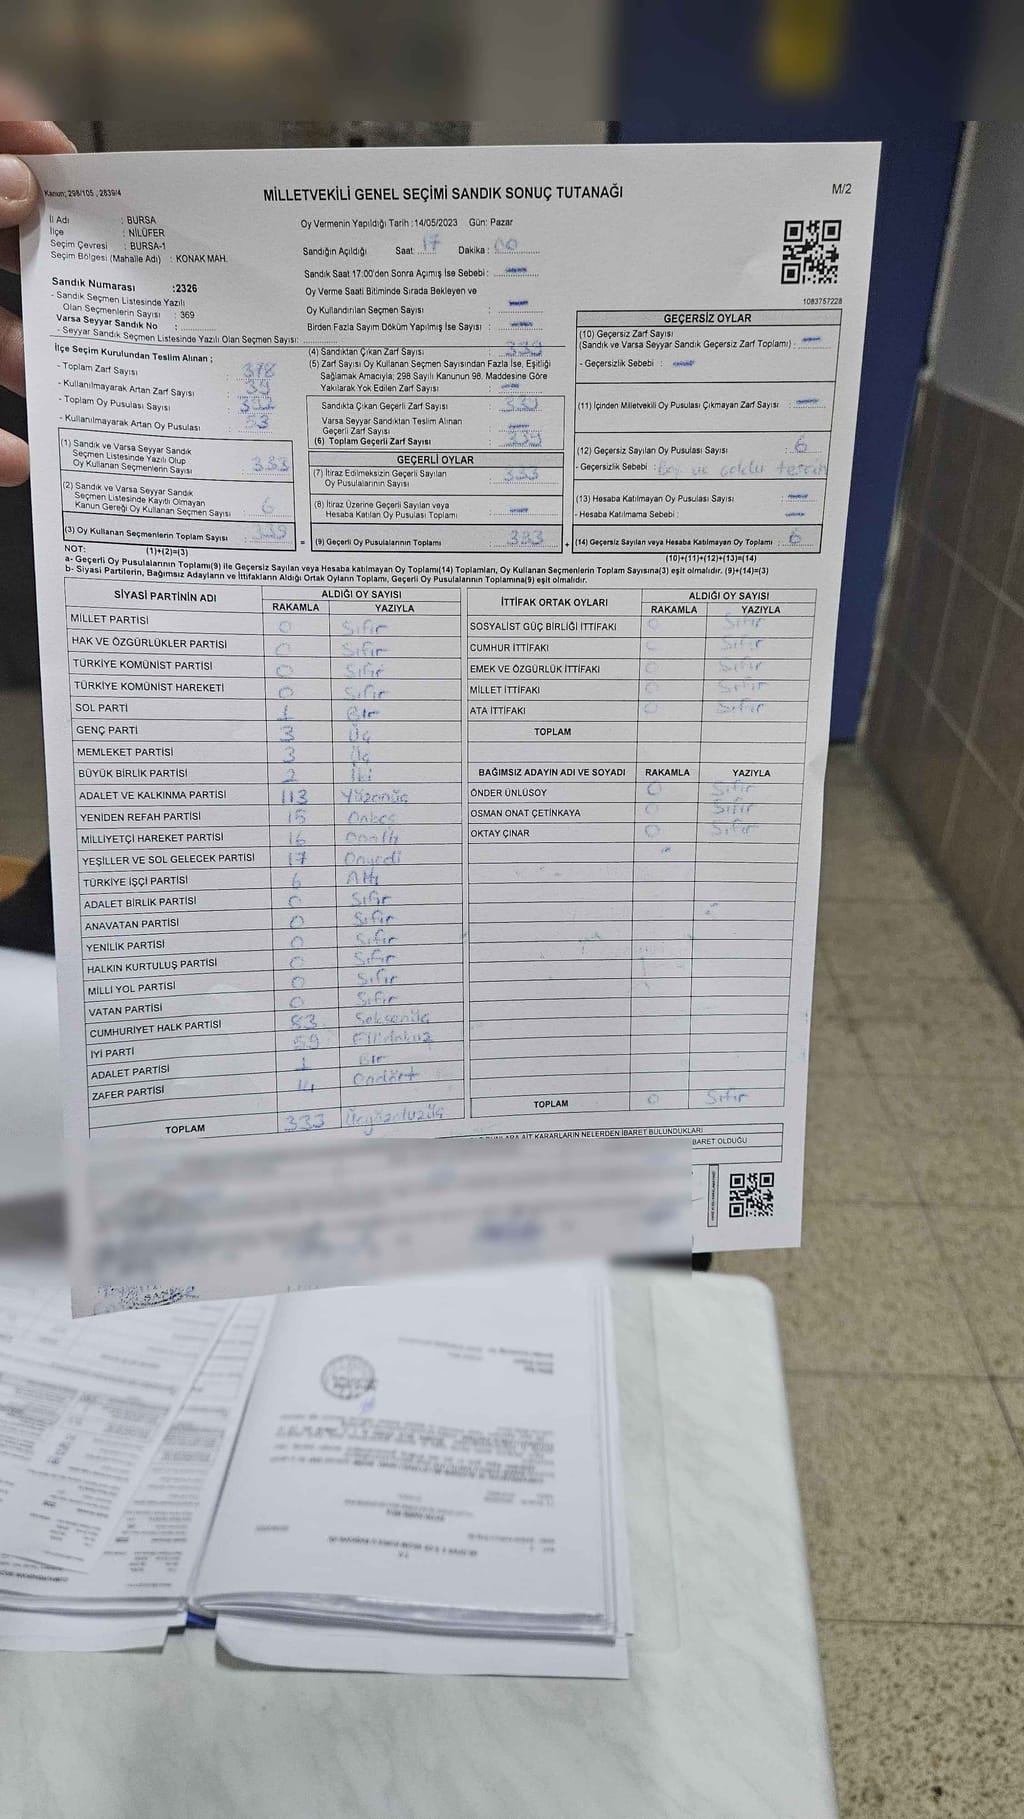 Kanun; 298/105 , 2839/4
MİLLETVEKİLİ GENEL SEÇİMİ SANDIK SONUÇ TUTANAĞI
M/2
İl Adı : BURSA
İlçe : NİLÜFER
Seçim Çevresi : BURSA-1
Seçim Bölgesi (Mahalle Adı) : KONAK MAH.
Oy Vermenin Yapıldığı Tarih :14/05/2023 Gün: Pazar
Sandığın Açıldığı Saat: 17 Dakika : 00
Sandık Saat 17:00'den Sonra Açılmış İse Sebebi : —
Oy Verme Saati Bitiminde Sırada Bekleyen ve
Oy Kullandırılan Seçmen Sayısı : —
Birden Fazla Sayım Döküm Yapılmış İse Sayısı : —
1083757228
Sandık Numarası :2326
- Sandık Seçmen Listesinde Yazılı
Olan Seçmenlerin Sayısı : 369
Varsa Seyyar Sandık No :
- Seyyar Sandık Seçmen Listesinde Yazılı Olan Seçmen Sayısı:
İlçe Seçim Kurulundan Teslim Alınan ;
- Toplam Zarf Sayısı : 378
- Kullanılmayarak Artan Zarf Sayısı : 39
- Toplam Oy Pusulası Sayısı :
- Kullanılmayarak Artan Oy Pusulası : 53
(1) Sandık ve Varsa Seyyar Sandık
Seçmen Listesinde Yazılı Olup
Oy Kullanan Seçmenlerin Sayısı : 333
(2) Sandık ve Varsa Seyyar Sandık
Seçmen Listesinde Kayıtlı Olmayan
Kanun Gereği Oy Kullanan Seçmen Sayısı : 6
(3) Oy Kullanan Seçmenlerin Toplam Sayısı : 339
(4) Sandıktan Çıkan Zarf Sayısı : 339
(5) Zarf Sayısı Oy Kullanan Seçmen Sayısından Fazla İse, Eşitliği
Sağlamak Amacıyla; 298 Sayılı Kanunun 98. Maddesine Göre
Yakılarak Yok Edilen Zarf Sayısı : —
Sandıkta Çıkan Geçerli Zarf Sayısı : 339
Varsa Seyyar Sandıktan Teslim Alınan
Geçerli Zarf Sayısı : —
(6) Toplam Geçerli Zarf Sayısı : 339
GEÇERLİ OYLAR
(7) İtiraz Edilmeksizin Geçerli Sayılan
Oy Pusulalarının Sayısı : 333
(8) İtiraz Üzerine Geçerli Sayılan veya
Hesaba Katılan Oy Pusulası Toplamı : —
= (9) Geçerli Oy Pusulalarının Toplamı : 333
GEÇERSİZ OYLAR
(10) Geçersiz Zarf Sayısı
(Sandık ve Varsa Seyyar Sandık Geçersiz Zarf Toplamı) : —
- Geçersizlik Sebebi : —
(11) İçinden Milletvekili Oy Pusulası Çıkmayan Zarf Sayısı : —
(12) Geçersiz Sayılan Oy Pusulası Sayısı : 6
- Geçersizlik Sebebi : Boş ve çoklu tercih
(13) Hesaba Katılmayan Oy Pusulası Sayısı : —
- Hesaba Katılmama Sebebi : —
+ (14) Geçersiz Sayılan veya Hesaba Katılmayan Oy Toplamı : 6
NOT: (1)+(2)=(3)
(10)+(11)+(12)+(13)=(14)
a- Geçerli Oy Pusulalarının Toplamı(9) ile Geçersiz Sayılan veya Hesaba katılmayan Oy Toplamı(14) Toplamları, Oy Kullanan Seçmenlerin Toplam Sayısına(3) eşit olmalıdır. (9)+(14)=(3)
b- Siyasi Partilerin, Bağımsız Adayların ve İttifakların Aldığı Ortak Oyların Toplamı, Geçerli Oy Pusulalarının Toplamına(9) eşit olmalıdır.
SİYASİ PARTİNİN ADI ALDIĞI OY SAYISI
RAKAMLA YAZIYLA
MİLLET PARTİSİ 0 Sıfır
HAK VE ÖZGÜRLÜKLER PARTİSİ 0 Sıfır
TÜRKİYE KOMÜNİST PARTİSİ 0 Sıfır
TÜRKİYE KOMÜNİST HAREKETİ 0 Sıfır
SOL PARTİ 1 Bir
GENÇ PARTİ 3 Üç
MEMLEKET PARTİSİ 3 Üç
BÜYÜK BİRLİK PARTİSİ 2 İki
ADALET VE KALKINMA PARTİSİ 113 Yüzonüç
YENİDEN REFAH PARTİSİ 15 Onbeş
MİLLİYETÇİ HAREKET PARTİSİ 16 Onaltı
YEŞİLLER VE SOL GELECEK PARTİSİ 17 Onyedi
TÜRKİYE İŞÇİ PARTİSİ 6 Altı
ADALET BİRLİK PARTİSİ 0 Sıfır
ANAVATAN PARTİSİ 0 Sıfır
YENİLİK PARTİSİ 0 Sıfır
HALKIN KURTULUŞ PARTİSİ 0 Sıfır
MİLLİ YOL PARTİSİ 0 Sıfır
VATAN PARTİSİ 0 Sıfır
CUMHURİYET HALK PARTİSİ 83 Seksenüç
İYİ PARTİ 59 Ellidokuz
ADALET PARTİSİ 1 Bir
ZAFER PARTİSİ 14 Ondört
TOPLAM 333 Üçyüzotuzüç
İTTİFAK ORTAK OYLARI ALDIĞI OY SAYISI
RAKAMLA YAZIYLA
SOSYALİST GÜÇ BİRLİĞİ İTTİFAKI 0 Sıfır
CUMHUR İTTİFAKI 0 Sıfır
EMEK VE ÖZGÜRLÜK İTTİFAKI 0 Sıfır
MİLLET İTTİFAKI 0 Sıfır
ATA İTTİFAKI 0 Sıfır
TOPLAM
BAĞIMSIZ ADAYIN ADI VE SOYADI RAKAMLA YAZIYLA
ÖNDER ÜNLÜSOY 0 Sıfır
OSMAN ONAT ÇETİNKAYA 0 Sıfır
OKTAY ÇINAR 0 Sıfır
TOPLAM 0 Sıfır
AİT KARARLARIN NELERDEN İBARET BULUNDUKLARI
BARET OLDUĞU